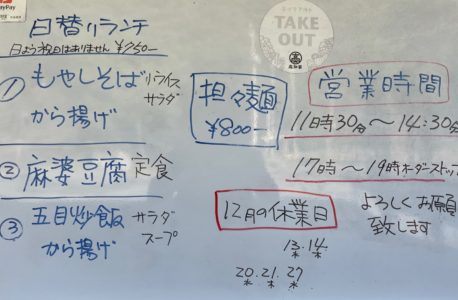 PayPay
日替りランチ
日よう祝日はありません ¥750-
① もやしそば 小ライス
から揚げ サラダ
② 麻婆豆腐 定食
③ 五目炒飯 サラダ
から揚げ スープ
TAKE
OUT
担々麺
¥800-
営業時間
11時30分〜14:30分
17時〜19時オーダーストップ
12月の休業日
13. 14.
水 木
20. 21. 27
水 木 水
よろしくお願
致します